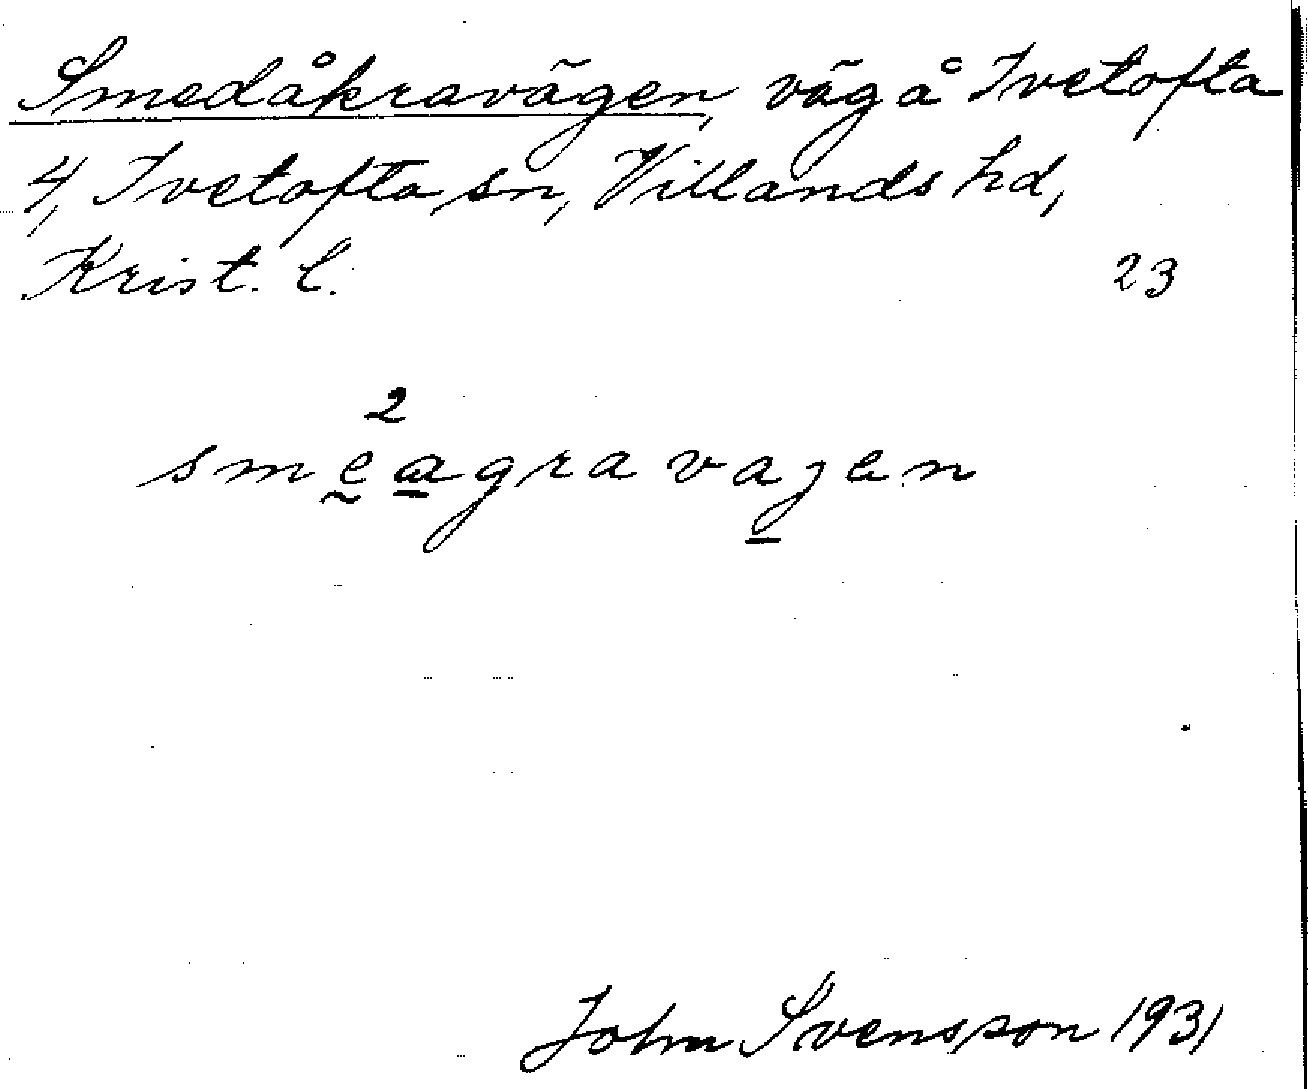 Smedåkravägen, väg å Ivetofta
4, Ivetofta sn, Villands hd,
Krist. l. 23
2
smeagravajen
John Svensson 1931